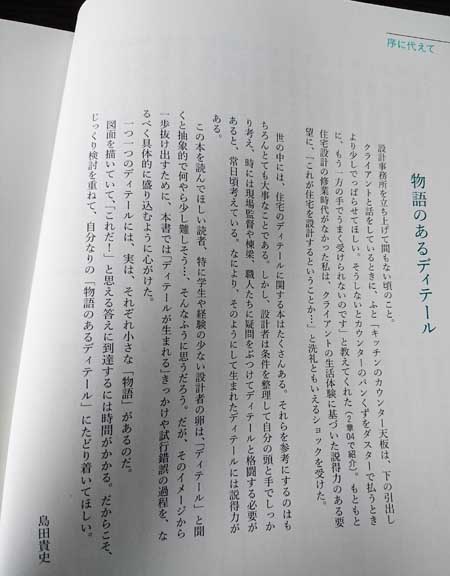 序に代えて
物語のあるディテール
設計事務所を立ち上げて間もない頃のこと。
クライアントと話をしているときに、ふと「キッチンのカウンター天板は、下の引出し
より少しでっぱらせてほしい。そうしないとカウンターのパンくずをダスターで払うとき
に、もう一方の手でうまく受けられないのです」と教えてくれた（2章04で紹介）。もともと
住宅設計の修業時代がなかった私は、クライアントの生活体験に基づいた説得力のある要
望に、「これが住宅を設計するということか…」と洗礼ともいえるショックを受けた。
世の中には、住宅のディテールに関する本はたくさんある。それらを参考にするのはも
ちろんとても大事なことである。しかし、設計者は条件を整理して自分の頭と手でしっか
り考え、時には現場監督や棟梁、職人たちに疑問をぶつけてディテールと格闘する必要が
あると、常日頃考えている。なにより、そのようにして生まれたディテールには説得力が
ある。
この本を読んでほしい読者、特に学生や経験の少ない設計者の卵は、「ディテール」と聞
くと抽象的で何やら少し難しそう…、そんなふうに思うだろう。だが、そのイメージから
一歩抜け出すために、本書では「ディテールが生まれる」きっかけや試行錯誤の過程を、な
るべく具体的に盛り込むように心がけた。
一つ一つのディテールには、実は、それぞれ小さな「物語」があるのだ。
図面を描いていて、「これだ！」と思える答えに到達するには時間がかかる。だからこそ、
じっくり検討を重ねて、自分なりの「物語のあるディテール」にたどり着いてほしい。
島田貴史